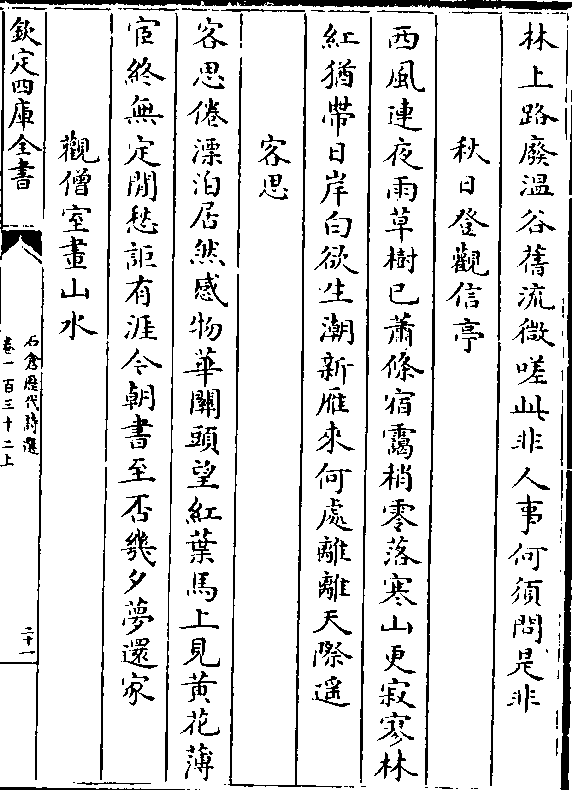 林上路廢溫谷舊流微嗟此非人事何須問是非
秋日登觀信亭
西風連夜雨草樹已蕭條宿靄梢零落寒山更寂寥林
紅猶帶日岸白欲生潮新雁來何處離離天際遥
客思
客思倦漂泊居然感物華關頭望紅葉馬上見黄花薄
宦終無定閒愁詎有涯今朝書至否幾夕夢還家
觀僧室畫山水
欽定四庫全書
石倉歴代詩選
卷一百三十二上
二十一